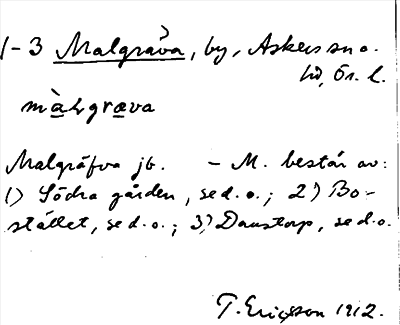 1-3 Malgräva, by, Askers sn o.
hd, Ör. l.
màlgræva
Malgräfva jb. – M. består av:
1) Södra gården, se d. o.; 2) Bo-
stället, se d. o.; 3) Danstorp, se d. o.
T. Ericsson 1912.